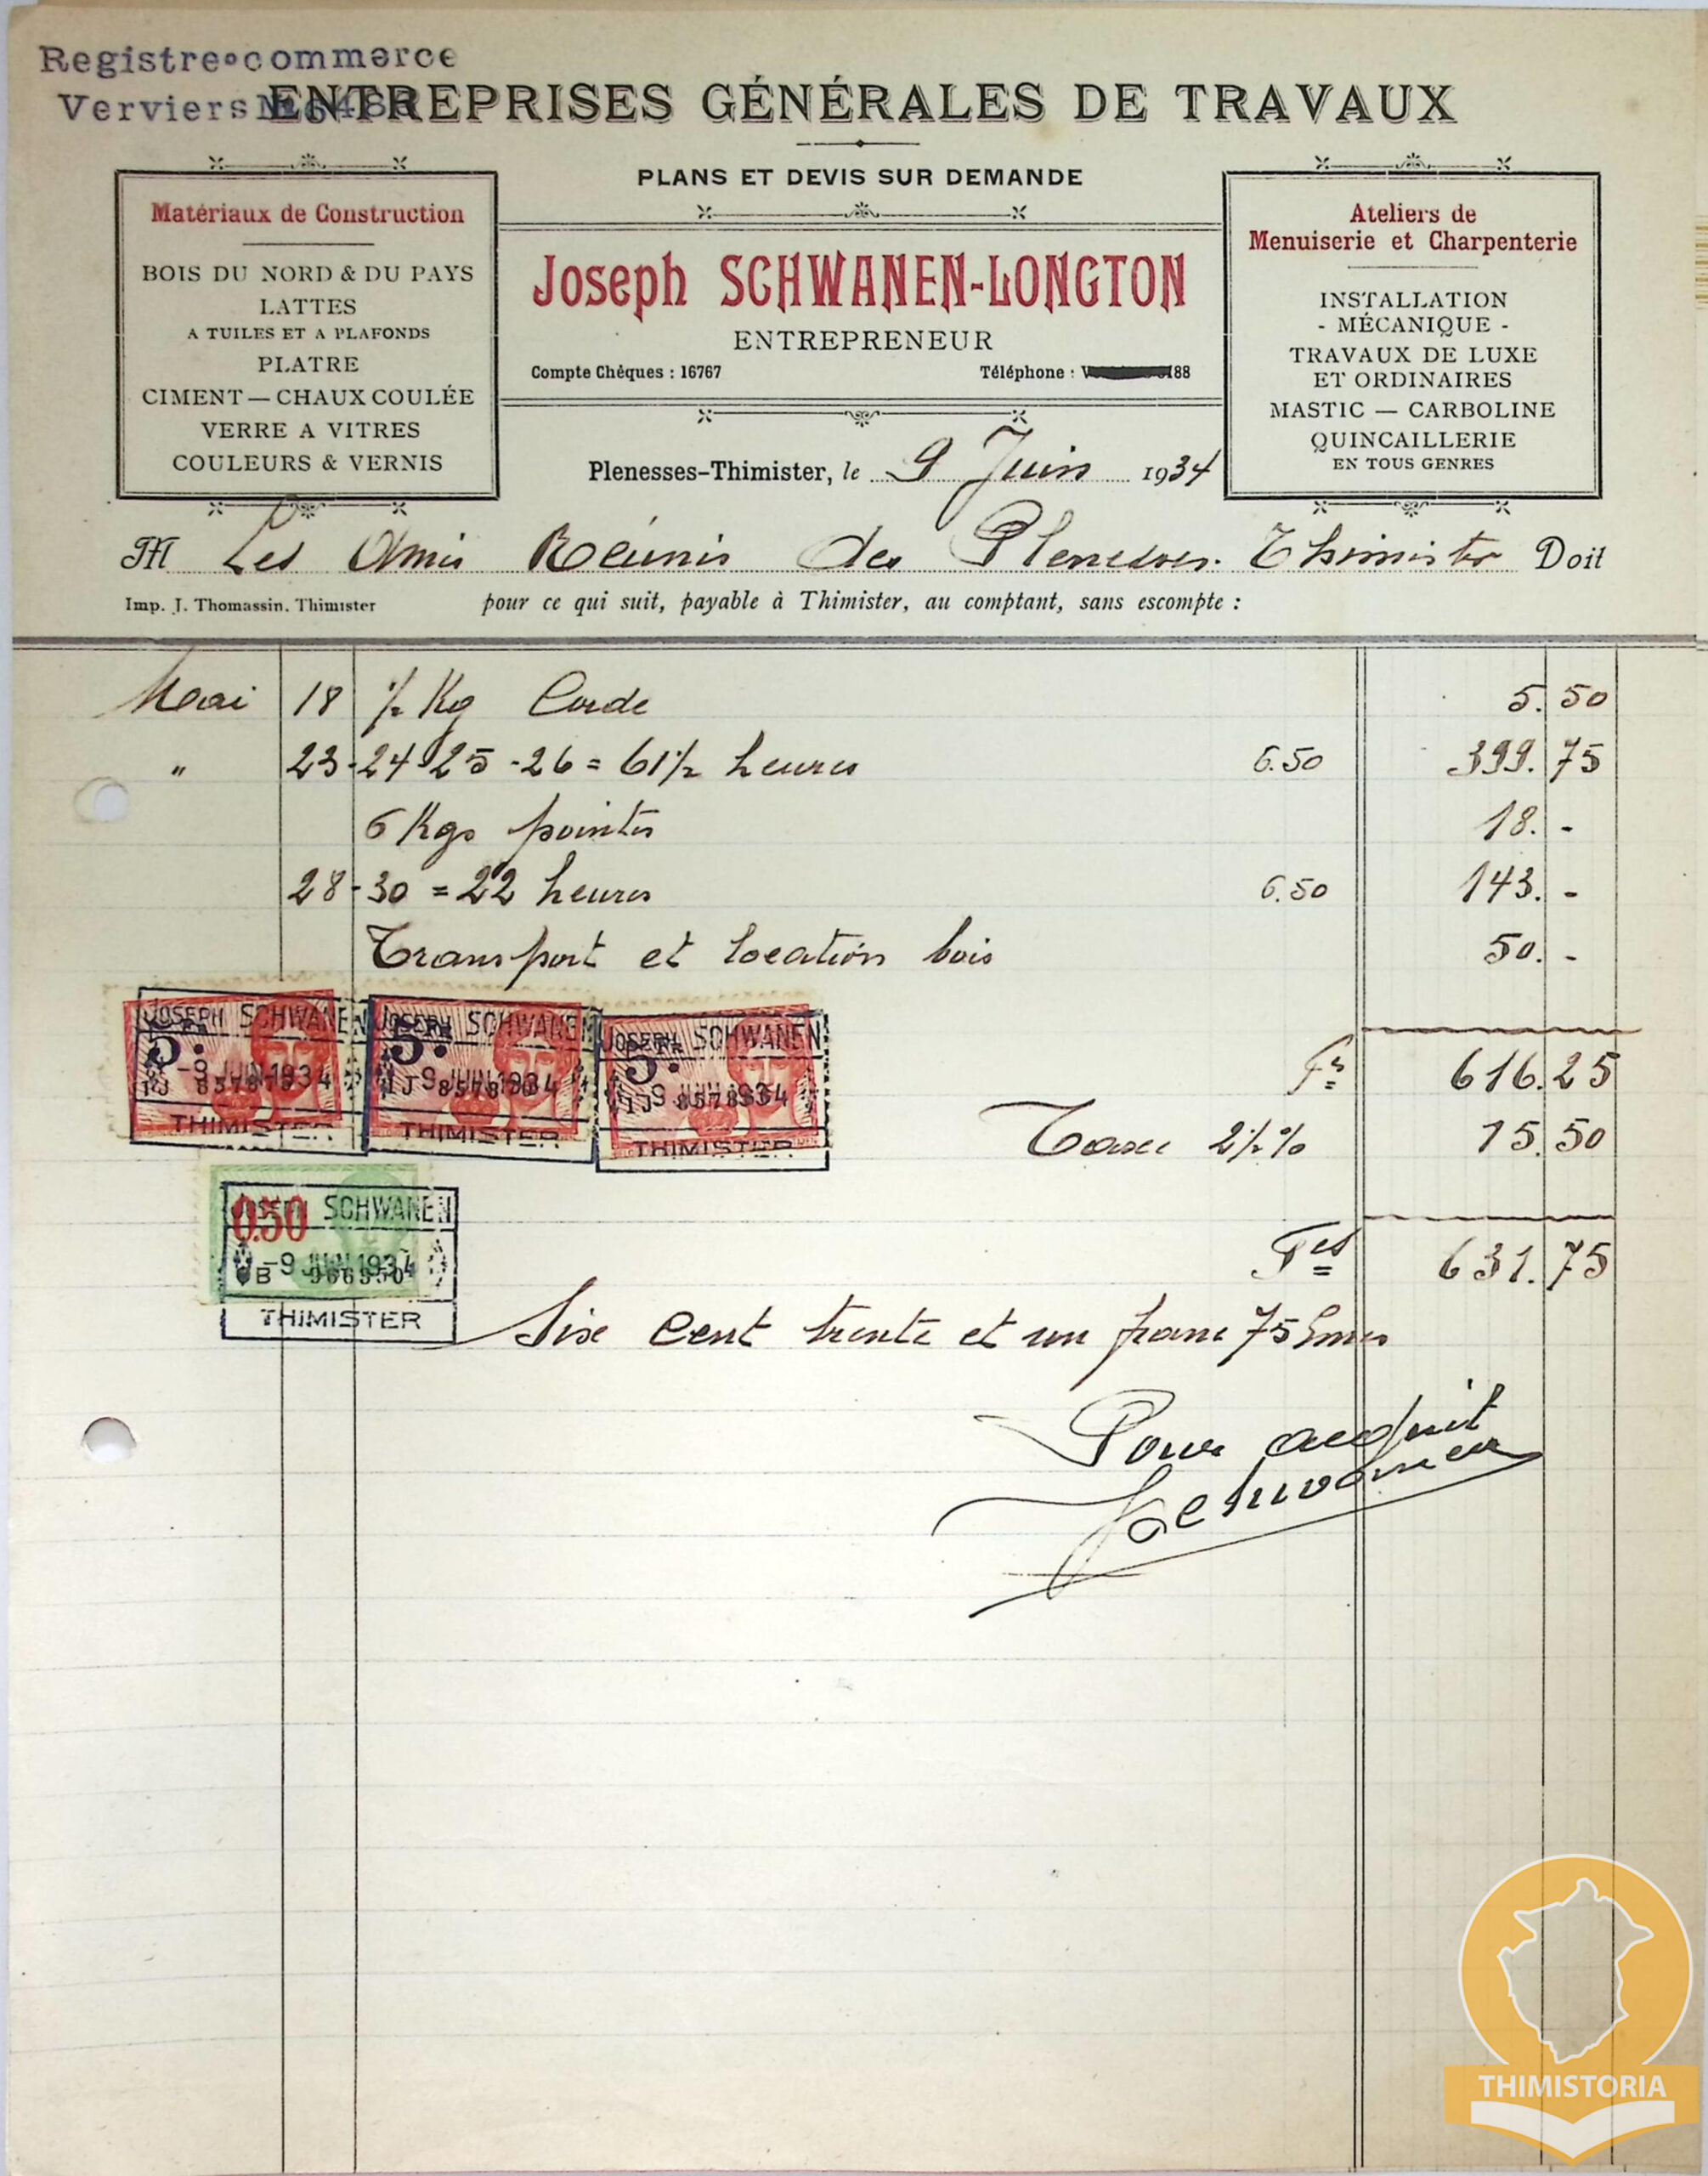 Registre commerce
Verviers No 6486
ENTREPRISES GÉNÉRALES DE TRAVAUX
PLANS ET DEVIS SUR DEMANDE
Matériaux de Construction
BOIS DU NORD & DU PAYS
LATTES
A TUILES ET A PLAFONDS
PLATRE
CIMENT — CHAUX COULÉE
VERRE A VITRES
COULEURS & VERNIS
Joseph SCHWANEN-LONGTON
ENTREPRENEUR
Compte Chèques : 16767
Téléphone : 188
Ateliers de
Menuiserie et Charpenterie
INSTALLATION
- MÉCANIQUE -
TRAVAUX DE LUXE
ET ORDINAIRES
MASTIC — CARBOLINE
QUINCAILLERIE
EN TOUS GENRES
Plenesses-Thimister, le 9 Juin 1934
M Les Amis Réunis des Plenesses. Thimister Doit
Imp. J. Thomassin. Thimister
pour ce qui suit, payable à Thimister, au comptant, sans escompte :
Mai 18 ½ Kg Corde 5.50
" 23-24-25-26 = 61½ heures 6.50 399.75
6 Kgs pointes 18.-
28-30 = 22 heures 6.50 143.-
Transport et location bois 50.-
Frs 616.25
Taxe 2½% 15.50
Frs 631.75
JOSEPH SCHWANEN
5 Fr
-9 JUIN 1934
THIMISTER
JOSEPH SCHWANEN
5 Fr
-9 JUIN 1934
THIMISTER
JOSEPH SCHWANEN
5 Fr
-9 JUIN 1934
THIMISTER
JOSEPH SCHWANEN
0.50
-9 JUIN 1934
THIMISTER
Six cent trente et un franc 75 Cmes
Pour acquit
Schwanen
THIMISTORIA